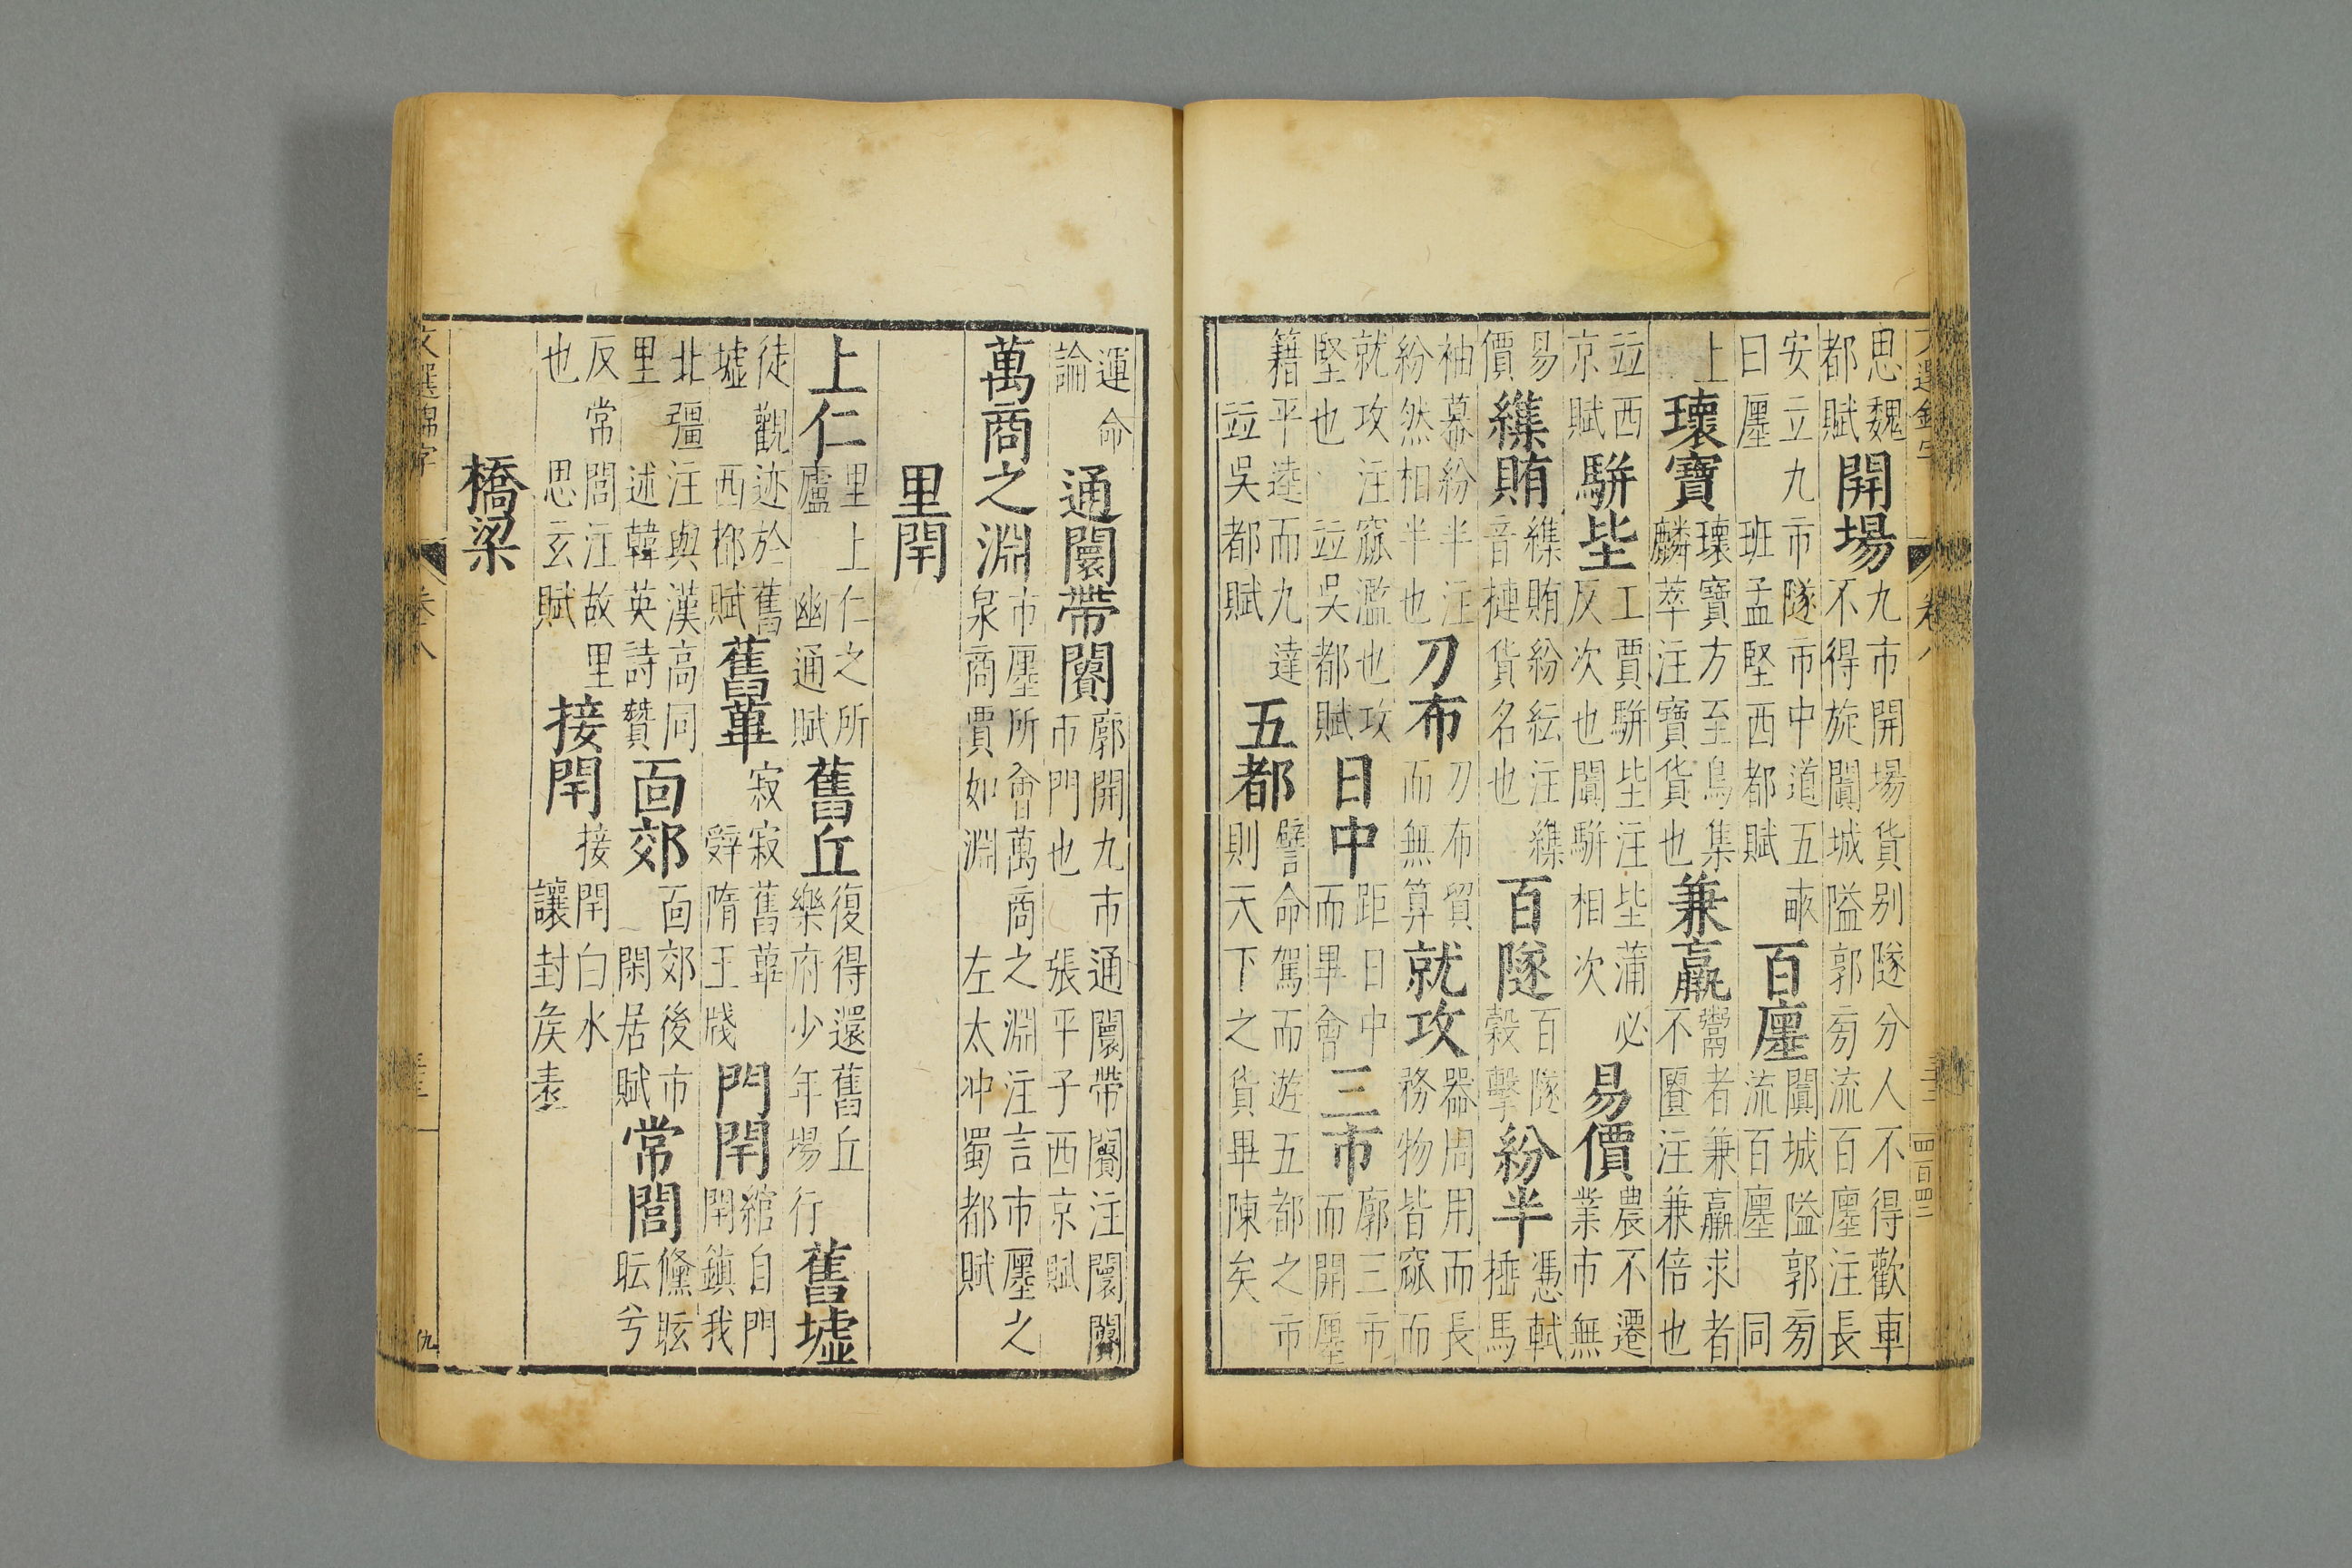 思魏都賦開場九市開場貨别隧分人不得歡車不得旋闐城隘郭旁流百廛注長
安立九市隧市中道五畝曰廛 班孟堅西都賦百廛闐城隘郭旁流百廛 同
上瓌寶瓌寶方至鳥集麟萃注寶貨也兼贏鬻者兼贏求者不匱注兼倍也
並西京賦駢坒工賈駢坒注坒蒲必反次也闐駢相次易價農不遷業市無
易價䌖賄䌖賄紛紜注䌖音揵貨名也百隧百隧轂擊紛半憑軾捶馬
袖幕紛半注紛然相半也刀布刀布貿而無算就攻器周用而長務物皆窳而
就攻注窳濫也攻堅也 並吳都賦日中距日中而畢會三市廓三市而開廛
籍平逵而九達 並吳都賦五都譬命駕而遊五都之市則天下之貨畢陳矣
運命論通闤帶闠廓開九市通闤帶闠注闤闠市門也 張平子西京賦
萬商之淵市廛所會萬商之淵注言市廛之泉商賈如淵 左太冲蜀都賦
里閈
上仁里上仁之所廬 幽通賦舊丘復得還舊丘樂府少年場行舊墟
徒觀迹於舊墟 西都賦舊蓽寂寂舊蓽 辤隋王牋門閈綰自門閈鎮我
北疆注與漢高同里 述韓英詩贊面郊面郊後市閑居賦常閭儵眩眃兮
反常閭注故里也 思玄賦接閈接閈白水讓封侯表
橋梁
文選錦字
卷八